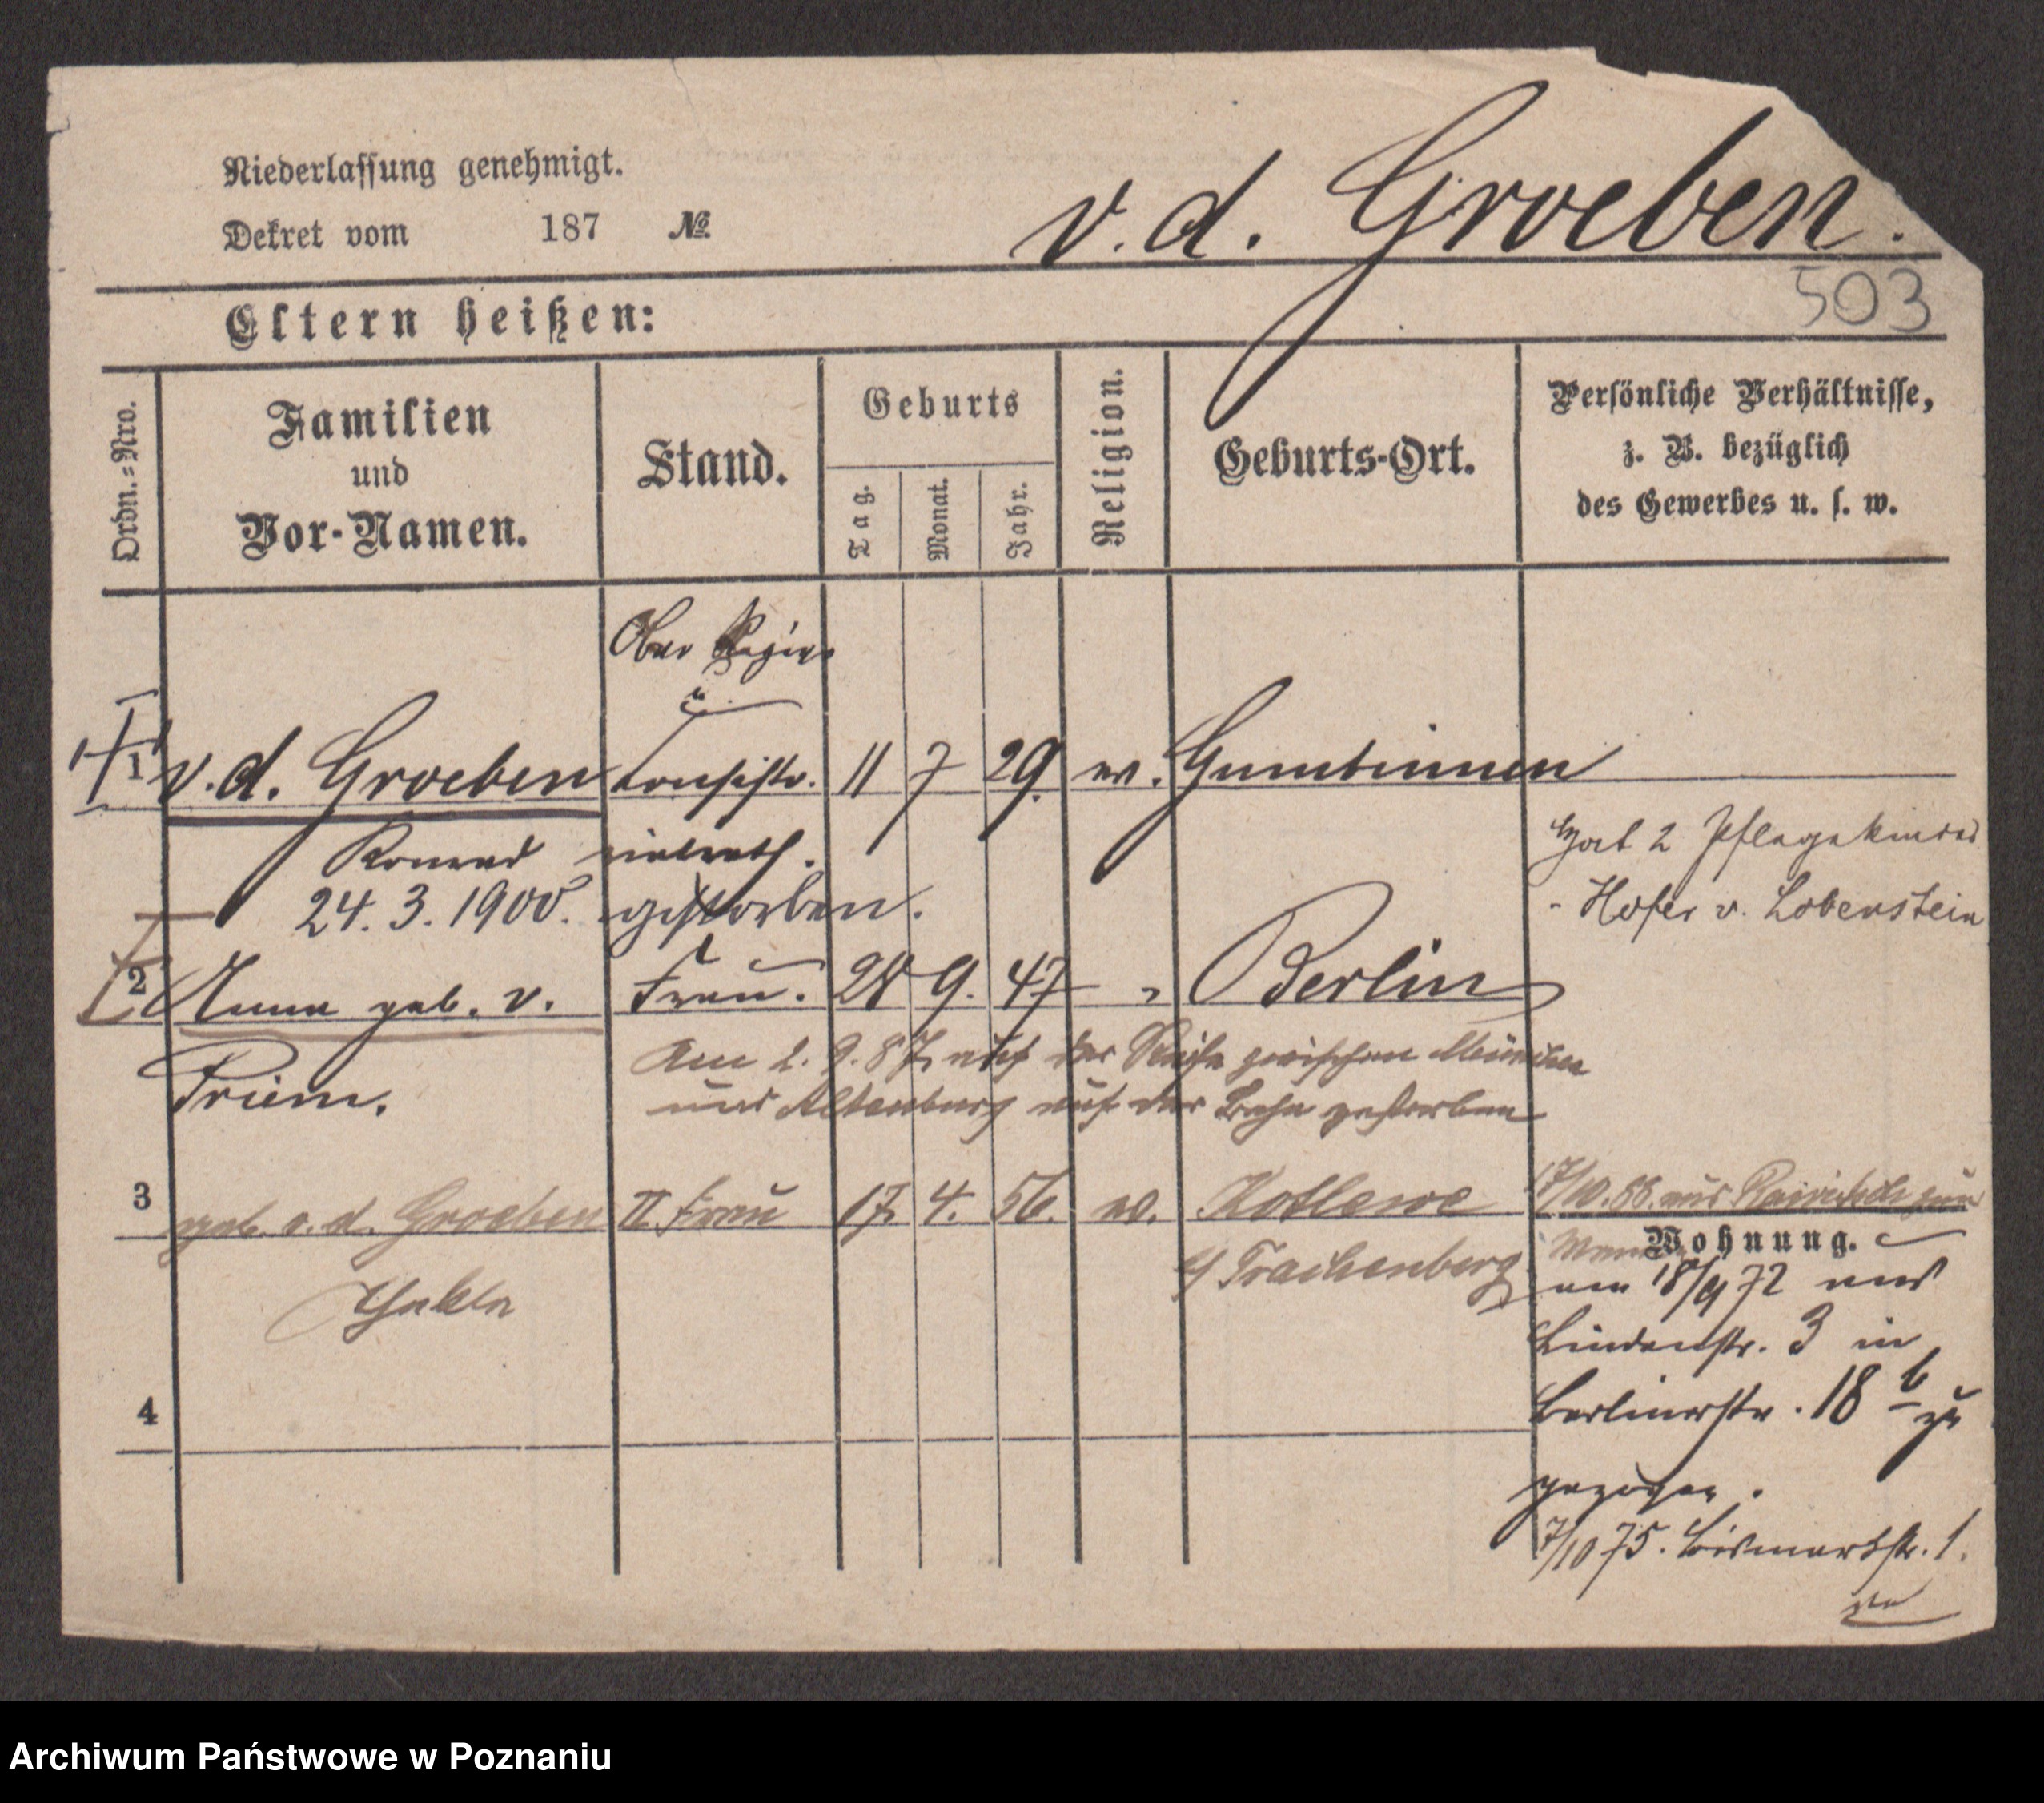 Niederlassung genehmigt.
Dekret vom 187 №
v. d. Groeben.
503
Eltern heißen:
Ordn.=Nro.
Familien
und
Vor-Namen.
Stand.
Geburts
Tag.
Monat.
Jahr.
Religion.
Geburts-Ort.
Persönliche Verhältnisse,
z. B. bezüglich
des Gewerbes u. s. w.
Ober Regier
u
1 v. d. Groeben Consistr. 11 7 29. ev. Gumbinnen
Konrad
24. 3. 1900. gestorben.
Hat 2 Pflegekinder
- Hofer v. Lobenstein
2 Anna geb. v. Frau. 28 9. 47 " Berlin
Priem.
Am 2. 9. 87 auf der Reise zwischen München
und Altenburg auf der Bahn gestorben
3 geb. v. d. Groeben II Frau 17. 4. 56. ev. Kotlewe
Thekla
b/ Trachenberg
17/10. 88. aus zum
Wohnung.
am 18/9 72 aus
Lindenstr. 3 in
Berlinerstr. 18 b zu
gezogen.
4
7/10 75. Bismarkstr. 1.
Archiwum Państwowe w Poznaniu